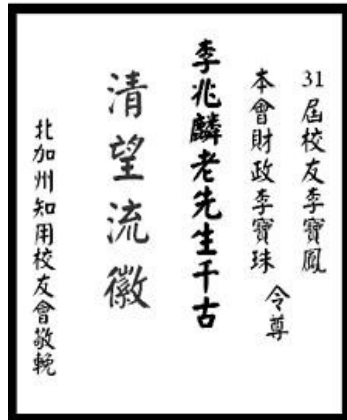 31屆校友李寶鳳
本會財政李寶珠
令尊
李兆麟老先生千古
清望流徽
北加州知用校友會敬輓